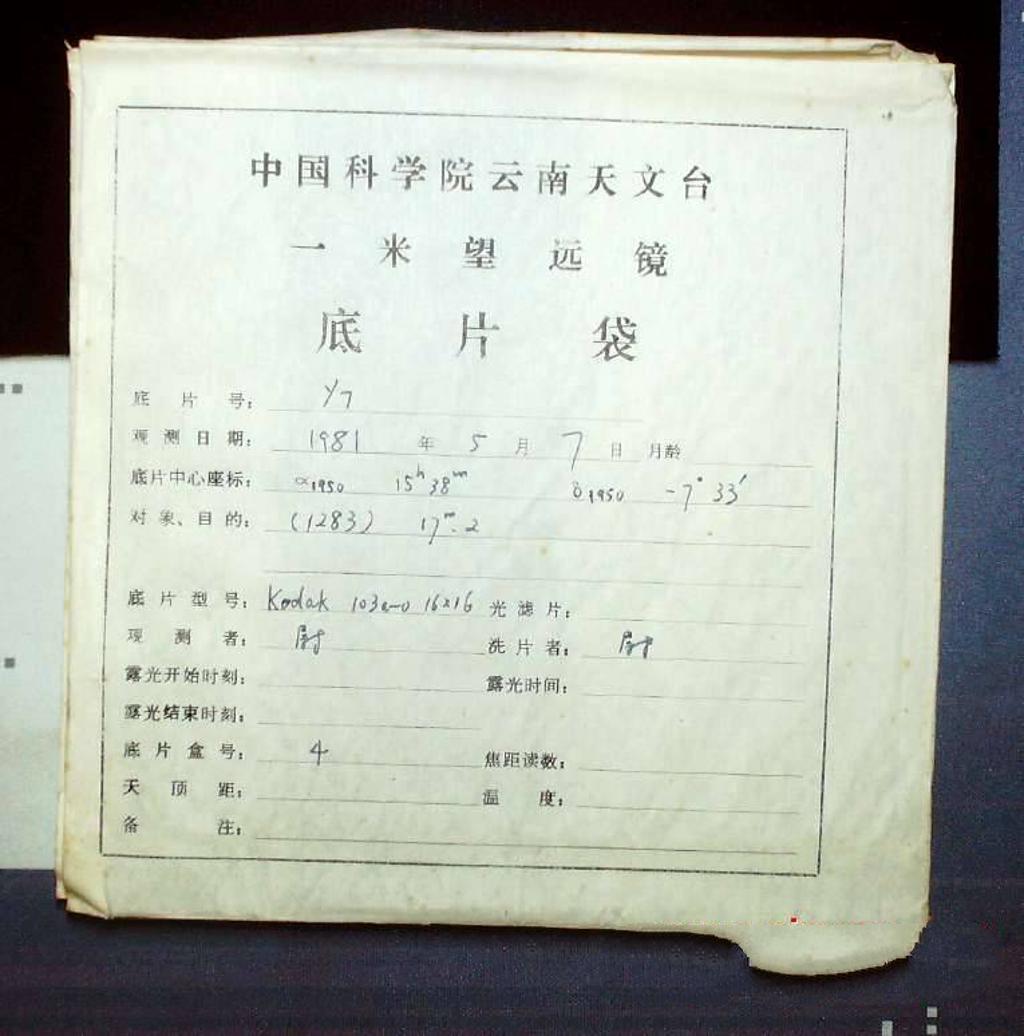 中国科学院云南天文台
一米望远镜
底片袋
底片号: Y7
观测日期: 1981年5月7日 月龄
底片中心座标: α1950 15h 38m δ1950 -7° 33′
对象、目的: (1283) 17m.2
底片型号: Kodak 103a-O 16x16 光滤片:
观测者: 洗片者:
露光开始时刻: 露光时间:
露光结束时刻:
底片盒号: 4 焦距读数:
天顶距: 温度:
备注: